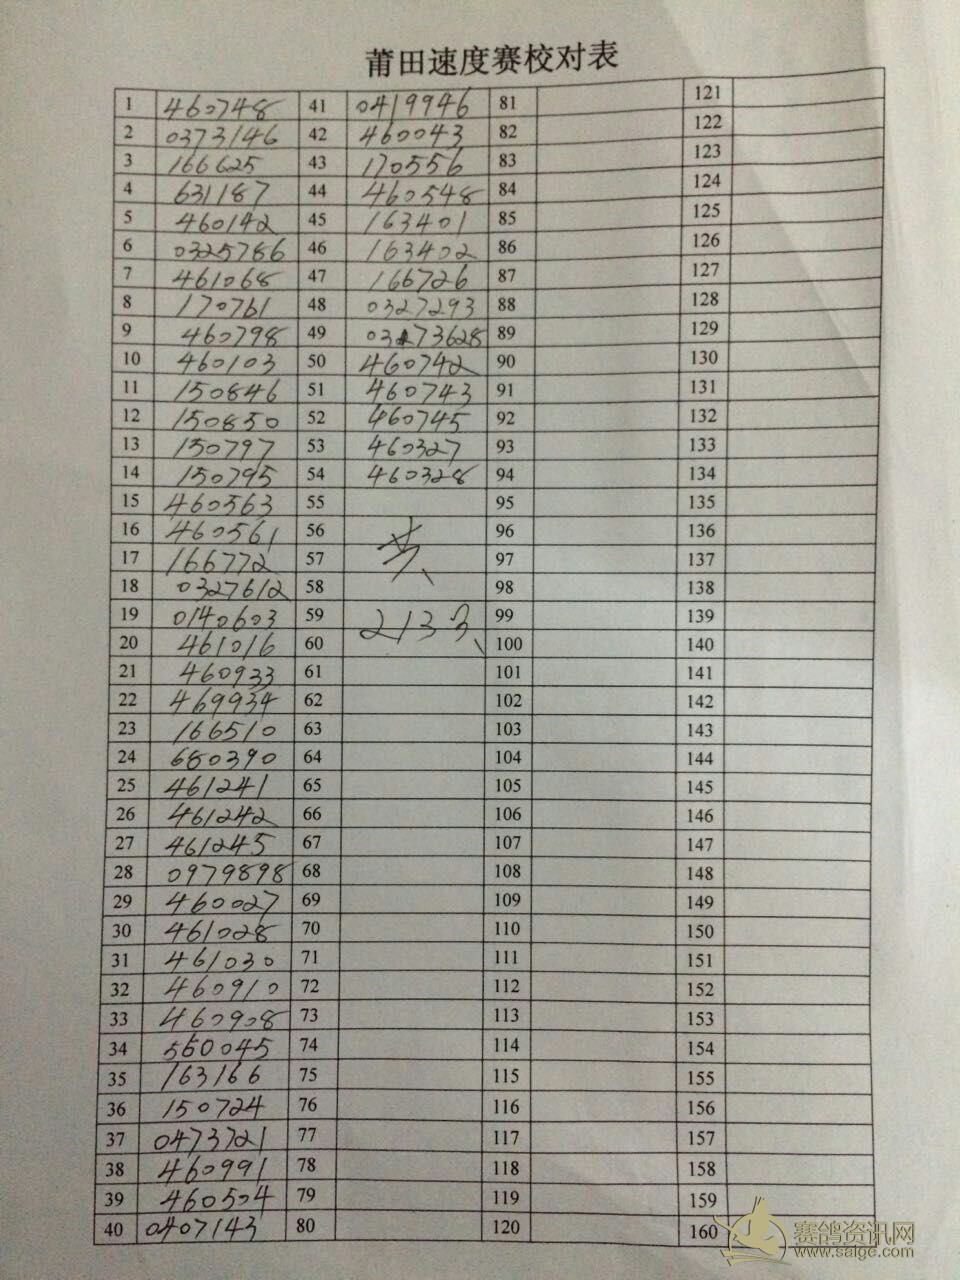 莆田速度赛校对表
1 460748 41 0419946 81 121
2 0373146 42 460043 82 122
3 166625 43 170556 83 123
4 631187 44 460548 84 124
5 460142 45 163401 85 125
6 0325786 46 163402 86 126
7 461068 47 166726 87 127
8 170761 48 0327293 88 128
9 460798 49 89 129
10 460103 50 460742 90 130
11 150846 51 460743 91 131
12 150850 52 460745 92 132
13 150797 53 460327 93 133
14 150795 54 460328 94 134
15 460563 55 95 135
16 460561 56 共 96 136
17 166772 57 97 137
18 0327612 58 98 138
19 0140603 59 213 99 139
20 461016 60 100 140
21 460933 61 101 141
22 469934 62 102 142
23 166510 63 103 143
24 680390 64 104 144
25 461241 65 105 145
26 461242 66 106 146
27 461245 67 107 147
28 0979898 68 108 148
29 460027 69 109 149
30 461028 70 110 150
31 461030 71 111 151
32 460910 72 112 152
33 460908 73 113 153
34 560045 74 114 154
35 163166 75 115 155
36 150724 76 116 156
37 0473721 77 117 157
38 460991 78 118 158
39 460504 79 119 159
40 0407143 80 120 160
赛鸽资讯网
www.saige.com